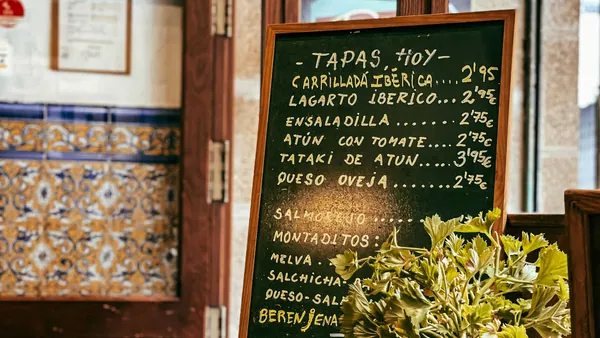 - TAPAS, HOY -
CARRILLADA IBÉRICA.... 2'95
LAGARTO IBERICO... 2'95€
ENSALADILLA ........ 2'75€
ATÚN CON TOMATE..... 2'75€
TATAKI DE ATUN..... 3'95€
QUESO OVEJA ........ 2'75€
SALMOREJO ......
MONTADITOS:
MELVA
SALCHICHA
QUESO-SAL
BERENJENA